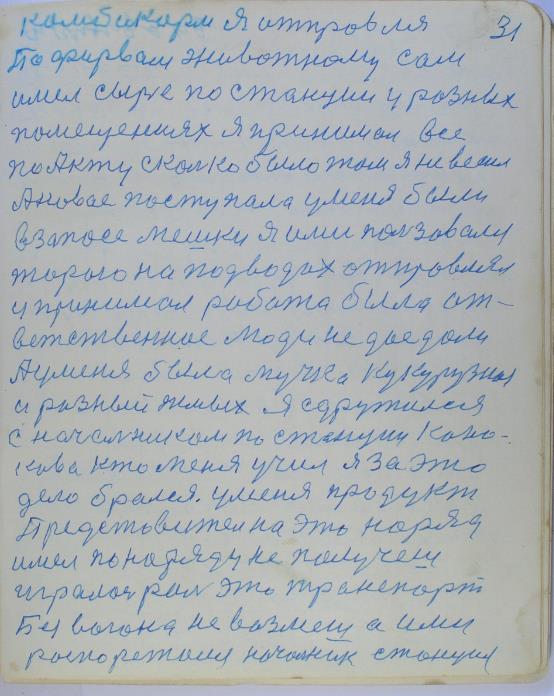 комбикорм я отпровля 31
По фирвам животному сам
имел сырье по станции у разных
помещениях я принимал все
по Акту сколко было том я не весил
А новое поступала у меня были
в запосе мешки я ими ползоваля
торого на подводах отправлял
и принимал работа была от-
ветственное люди не доедали
А у меня была мучка кукурузная
и разный жмых я сдружился
с началником по станции Коно-
кова кто меня учил я за это
дело брался. у меня продукт
Представител на это наряд
имел по наряду не получеш
играло рол это транспорт
Без вогона не возмеш а ими
роспорежался началник станция